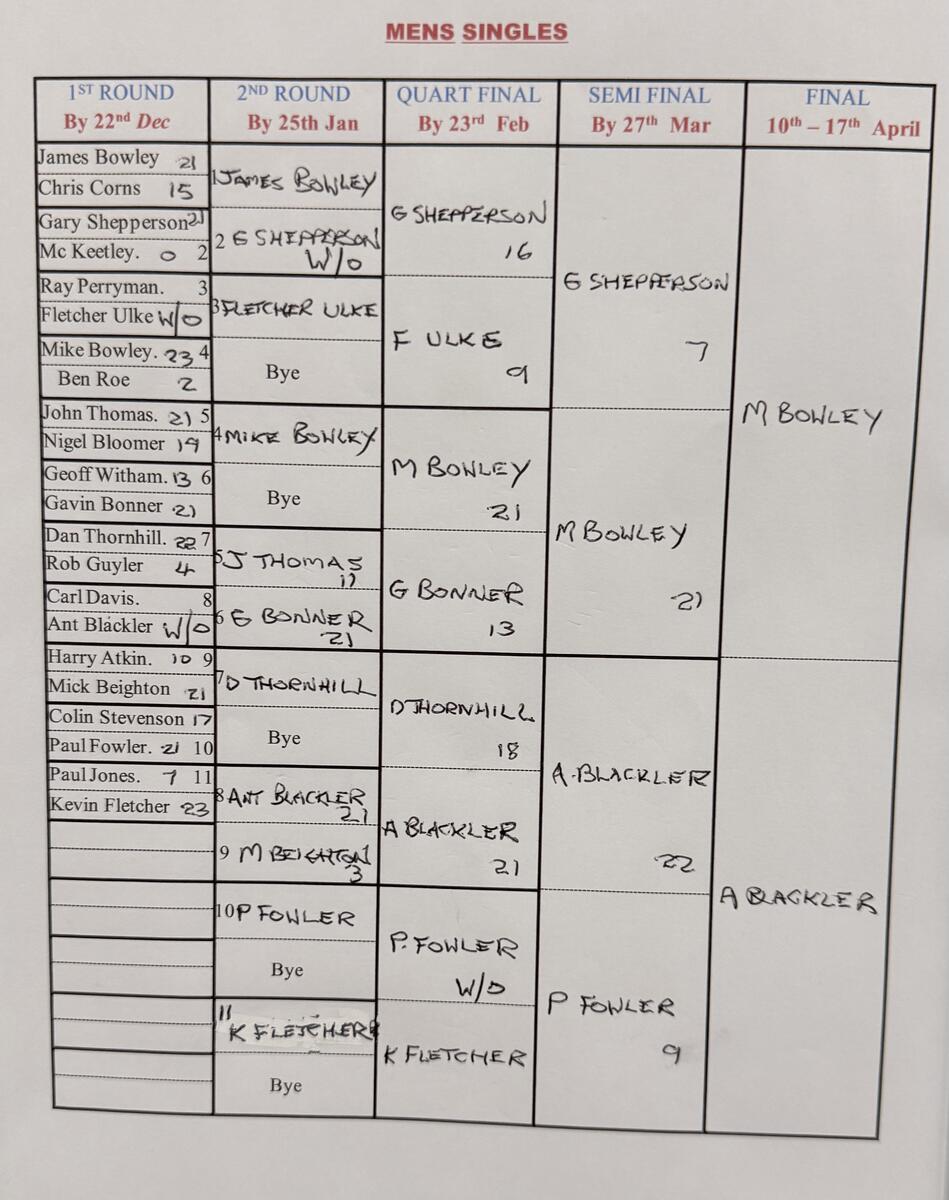 MENS SINGLES
1ST ROUND
By 22nd Dec
2ND ROUND
By 25th Jan
QUART FINAL
By 23rd Feb
SEMI FINAL
By 27th Mar
FINAL
10th – 17th April
James Bowley 21
Chris Corns 15
Gary Shepperson 21
Mc Keetley. 0 2
Ray Perryman. 3
Fletcher Ulke W/O
Mike Bowley. 23 4
Ben Roe 2
John Thomas. 21 5
Nigel Bloomer 19
Geoff Witham. 13 6
Gavin Bonner 21
Dan Thornhill. 22 7
Rob Guyler 4
Carl Davis. 8
Ant Blackler W/O
Harry Atkin. 10 9
Mick Beighton 21
Colin Stevenson 17
Paul Fowler. 21 10
Paul Jones. 7 11
Kevin Fletcher 23
1 JAMES BOWLEY
2 G SHEPPERSON
W/O
3 FLETCHER ULKE
Bye
4 MIKE BOWLEY
Bye
5 J THOMAS
11
6 G BONNER
21
7 D THORNHILL
Bye
8 ANT BLACKLER
21
9 M BEIGHTON
3
10 P FOWLER
Bye
11
K FLETCHER
Bye
G SHEPPERSON
16
F ULKE
9
M BOWLEY
21
G BONNER
13
D THORNHILL
18
A BLACKLER
21
P. FOWLER
W/O
K FLETCHER
G SHEPPERSON
7
M BOWLEY
21
A. BLACKLER
22
P FOWLER
9
M BOWLEY
A BLACKLER